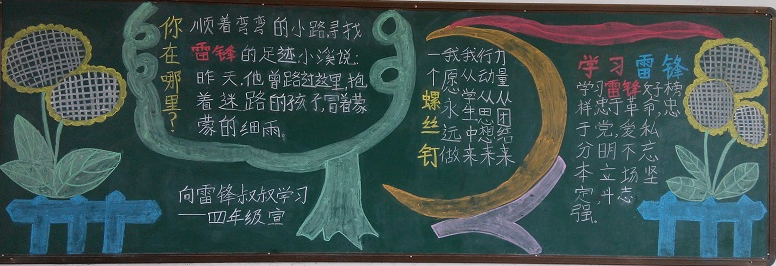 你在哪里？
顺着弯弯的小路寻找
雷锋的足迹小溪说:
昨天,他曾路过这里,抱
着迷路的孩子,冒着蒙
蒙的细雨。
向雷锋叔叔学习
——四年级宣
力量从团结来
行动从思想来
我从学生中来
我愿永远做
一个螺丝钉
学习雷锋
学习雷锋好榜
样忠于革命忠
于党爱私
分明不忘
本立场坚
定斗志
强。